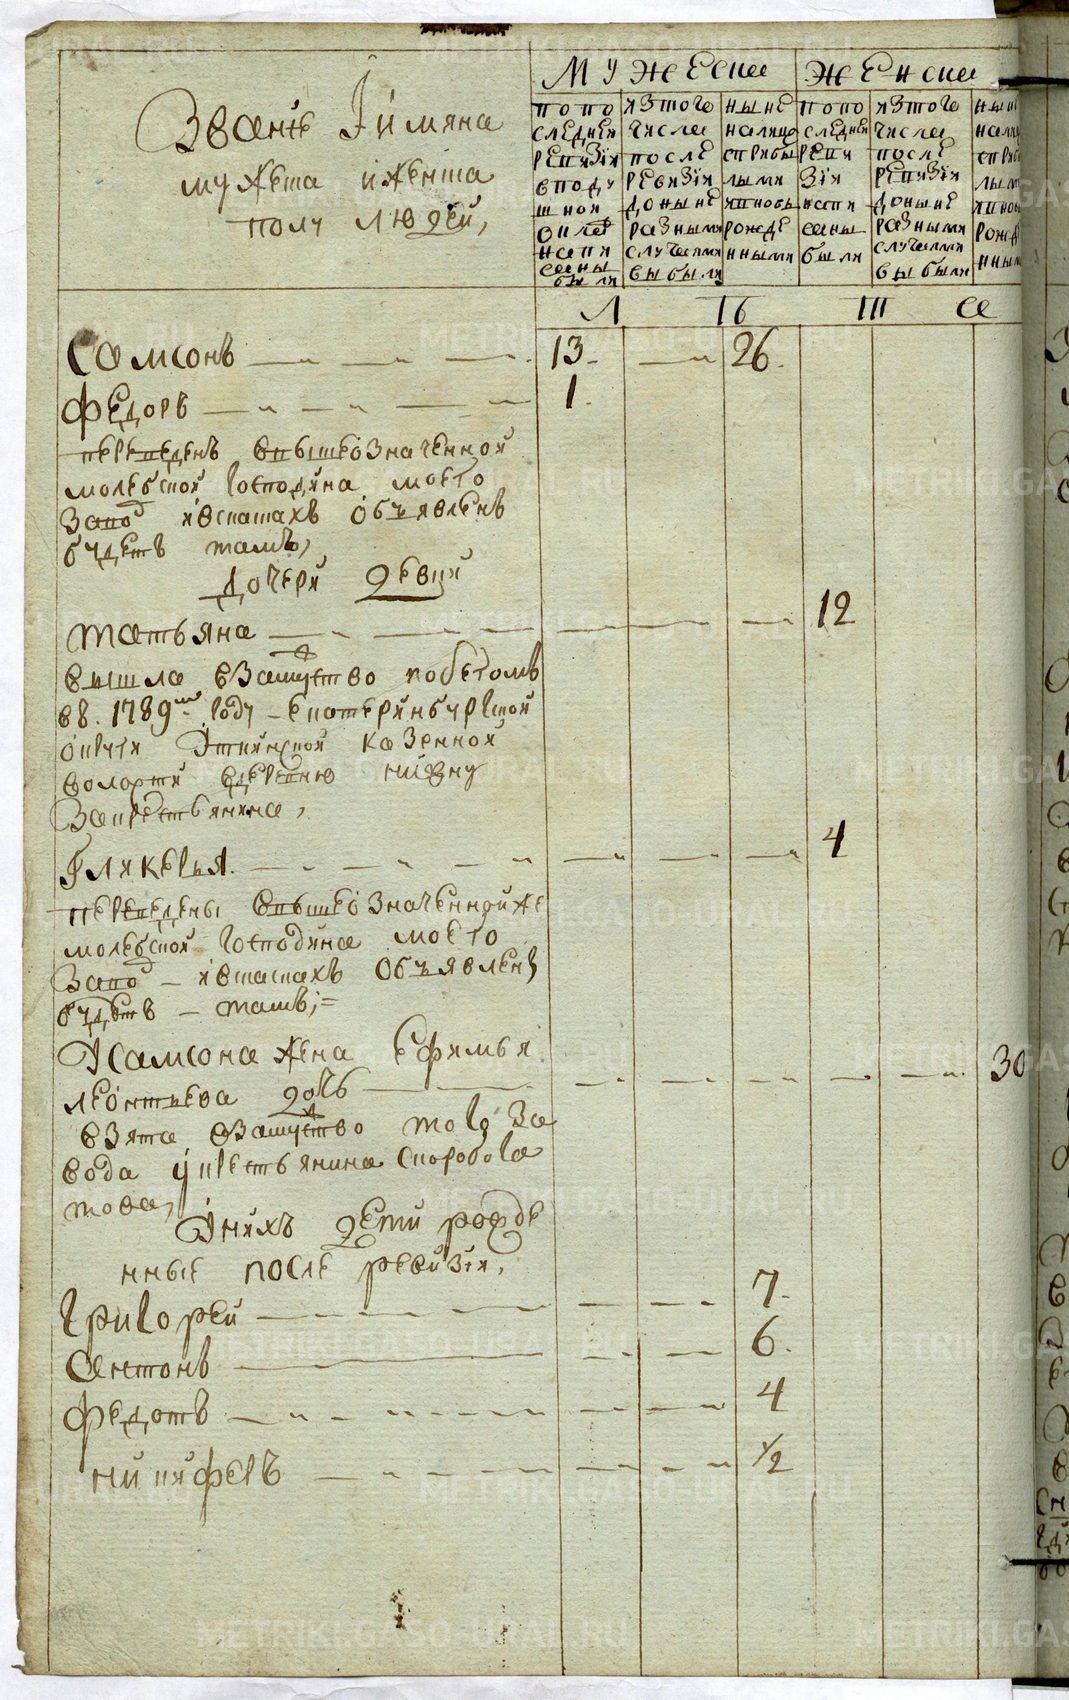 Званїе Їимяна
мужеска иженска
полу людей,
мужески
женски
попо следней ревизїи вподушной окладъ написаны были
изтого числа после ревизїи доныне разными случаями выбыли
ныне налицо сприбылыми ивновь рожденными
попо следней ревизїи написаны были
изтого числа после ревизїи доныне разными случаями выбыли
л ѣ та
Самсонъ 13 26
Федоръ 1
переведенъ ввышеозначенной
молебской господина моего
заво ивсказкахъ объявленъ
будетъ тамъ,
дочери девки
татьяна 12
вышла взамужство побегомъ
въ 1789 году екатеринбургской
округи казенной
волости вдеревню
закрестьянина,
Гликерья 4
переведены ввышеозначеннойже
молебской господина моего
заво ивсказкахъ объявлены
будетъ тамъ;
Усамсона жена ефимья 30
леонтьева дочь
взята взамужство того за
вода укрестьянина скоробога
това,
Уних дети рожде
нные после ревизїи,
григорей 7
антонъ 6
федотъ 4
никифоръ 1/2
METRIKI.GASO-URAL.RU